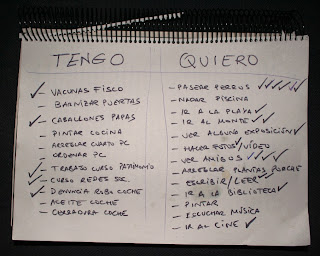 TENGO
✓ VACUNAS FISCO
– BARNIZAR PUERTAS
✓ CABALLONES PAPAS
– PINTAR COCINA
– ARREGLAR CUARTO PC
– ORDENAR PC
✓ TRABAJO CURSO PATRIMONIO
✓ CURSO REDES SOC.
✓ DENUNCIA ROBO COCHE
– ACEITE COCHE
– CERRADURA COCHE
QUIERO
– PASEAR PERROS ✓✓✓✓✓
– NADAR PISCINA
– IR A LA PLAYA ✓
– IR AL MONTE ✓✓
– VER ALGUNA EXPOSICIÓN ✓
– HACER FOTOS ✓/VIDEO
– VER AMIGOS ✓✓✓✓
– ARREGLAR PLANTAS PORCHE
– ESCRIBIR/LEER ✓
– IR A LA BIBLIOTECA ✓
– PINTAR
– ESCUCHAR MÚSICA
– IR AL CINE ✓